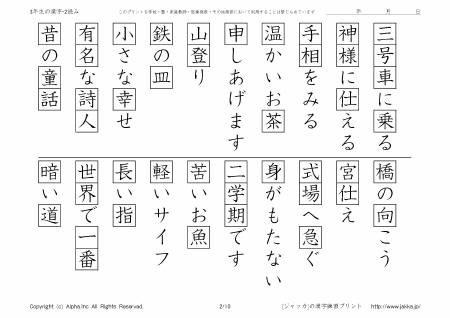 3年生の漢字-2読み
このプリントを学校・塾・家庭教師・医療機関・その他施設において利用することは禁じられています
年 月 日
三号車に乗る
神様に仕える
手相をみる
温かいお茶
申しあげます
山登り
鉄の皿
小さな幸せ
有名な詩人
昔の童話
橋の向こう
宮仕え
式場へ急ぐ
身がもたない
二学期です
苦いお魚
軽いサイフ
長い指
世界で一番
暗い道
Copyright (c) Alpha.Inc All Rights Reserved.
2/10
[ジャッカ]の漢字練習プリント http://www.jakka.jp/